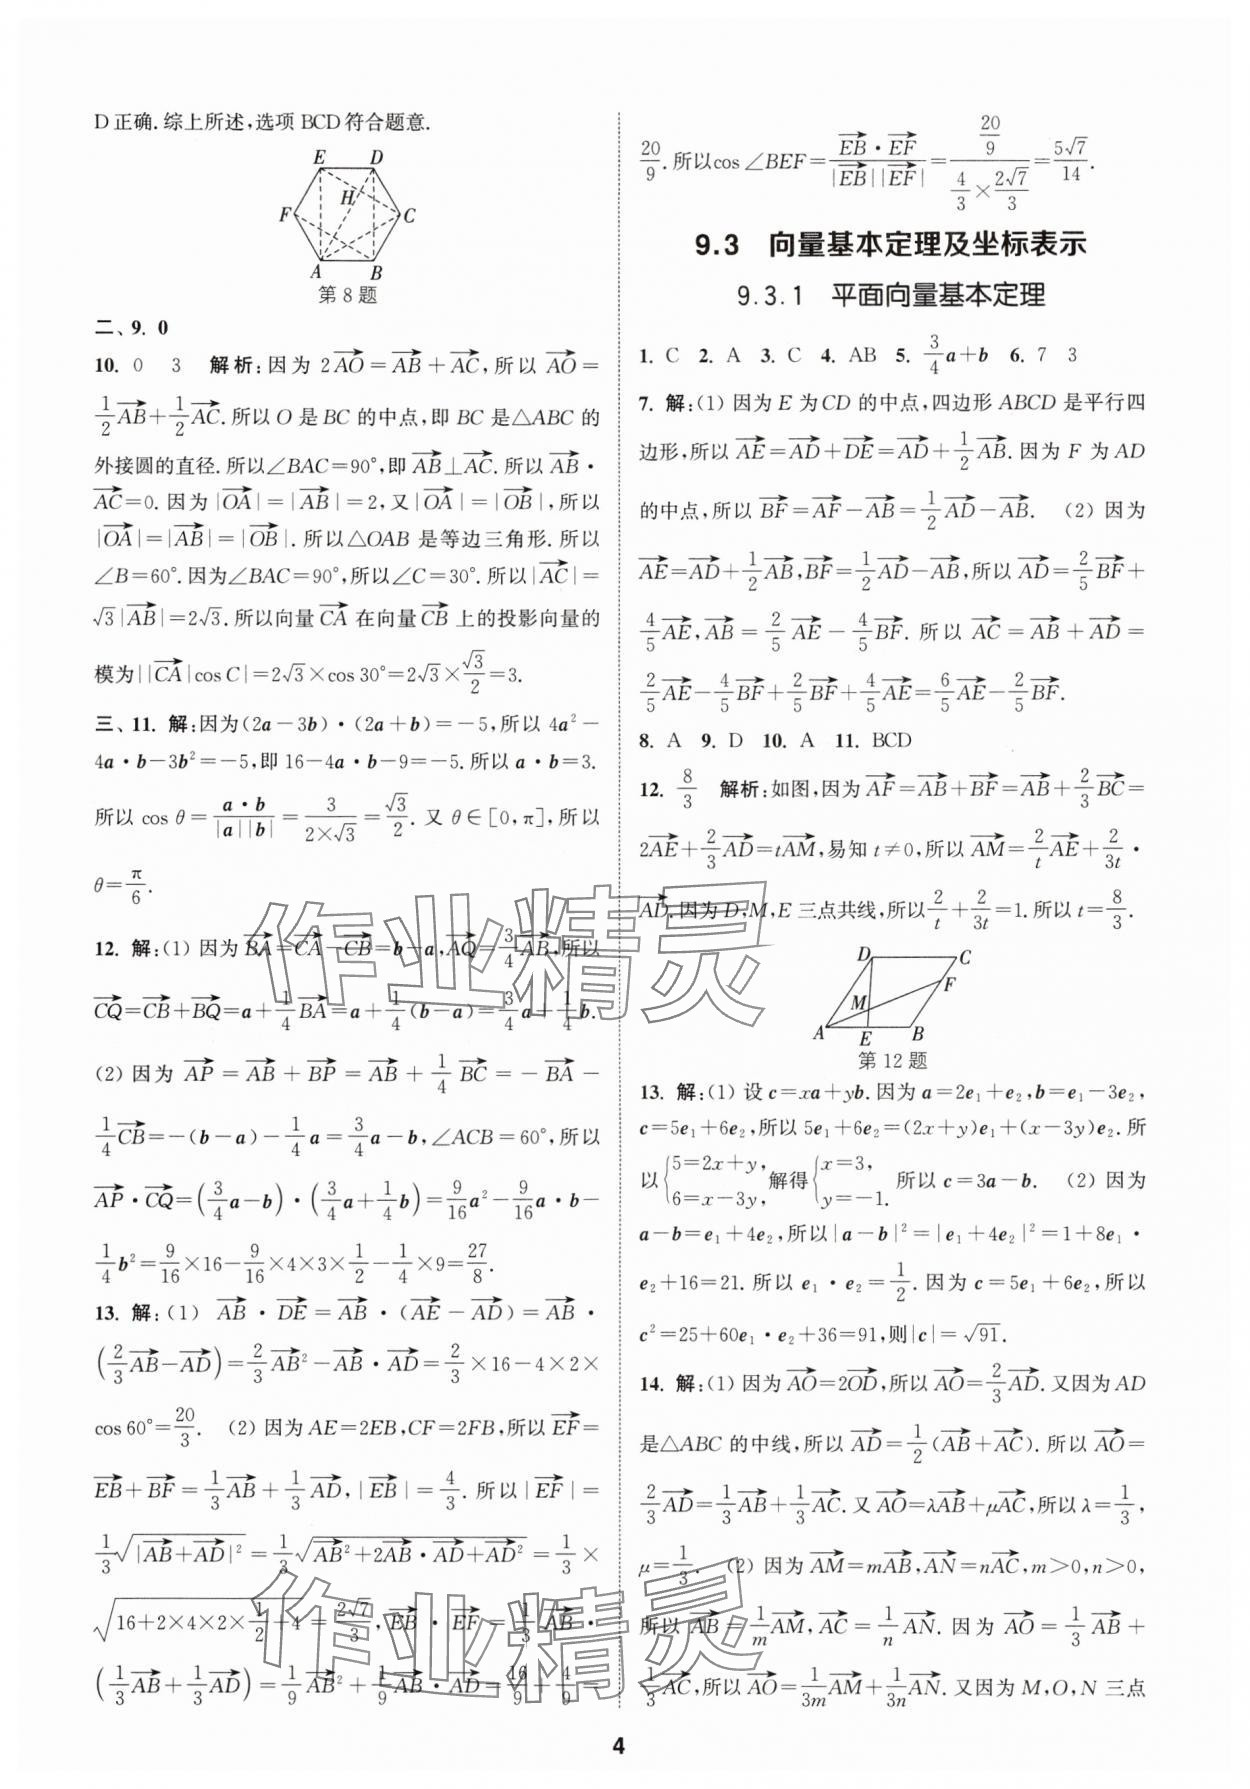 D正确.综上所述,选项BCD符合题意.
E D
H
F C
A B
第8题
二、9. 0
10. 0 3 解析:因为 2$\overrightarrow{AO}$=$\overrightarrow{AB}$+$\overrightarrow{AC}$,所以 $\overrightarrow{AO}$=
$\frac{1}{2}\overrightarrow{AB}$+$\frac{1}{2}\overrightarrow{AC}$.所以O是BC的中点,即BC是△ABC的
外接圆的直径.所以∠BAC=90°,即$\overrightarrow{AB}$⊥$\overrightarrow{AC}$.所以$\overrightarrow{AB}$·
$\overrightarrow{AC}$=0.因为|$\overrightarrow{OA}$|=|$\overrightarrow{AB}$|=2,又|$\overrightarrow{OA}$|=|$\overrightarrow{OB}$|,所以
|$\overrightarrow{OA}$|=|$\overrightarrow{AB}$|=|$\overrightarrow{OB}$|.所以△OAB是等边三角形.所以
∠B=60°.因为∠BAC=90°,所以∠C=30°.所以|$\overrightarrow{AC}$|=
$\sqrt{3}$|$\overrightarrow{AB}$|=2$\sqrt{3}$.所以向量$\overrightarrow{CA}$在向量$\overrightarrow{CB}$上的投影向量的
模为||$\overrightarrow{CA}$|cos C|=2$\sqrt{3}$×cos 30°=2$\sqrt{3}$×$\frac{\sqrt{3}}{2}$=3.
三、11. 解:因为(2a-3b)·(2a+b)=-5,所以 4a²-
4a·b-3b²=-5,即16-4a·b-9=-5.所以 a·b=3.
所以 cos θ=$\frac{a·b}{|a||b|}$=$\frac{3}{2×\sqrt{3}}$=$\frac{\sqrt{3}}{2}$.又θ∈[0,π],所以
θ=$\frac{π}{6}$.
12. 解:(1) 因为$\overrightarrow{BA}$=$\overrightarrow{CA}$-$\overrightarrow{CB}$=b-a,$\overrightarrow{AQ}$=$\frac{3}{4}\overrightarrow{AB}$,所以
$\overrightarrow{CQ}$=$\overrightarrow{CB}$+$\overrightarrow{BQ}$=a+$\frac{1}{4}\overrightarrow{BA}$=a+$\frac{1}{4}$(b-a)=$\frac{3}{4}$a+$\frac{1}{4}$b.
(2) 因为 $\overrightarrow{AP}$=$\overrightarrow{AB}$+$\overrightarrow{BP}$=$\overrightarrow{AB}$+$\frac{1}{4}\overrightarrow{BC}$=-$\overrightarrow{BA}$-
$\frac{1}{4}\overrightarrow{CB}$=-(b-a)-$\frac{1}{4}$a=$\frac{3}{4}$a-b,∠ACB=60°,所以
$\overrightarrow{AP}$·$\overrightarrow{CQ}$=($\frac{3}{4}$a-b)·($\frac{3}{4}$a+$\frac{1}{4}$b)=$\frac{9}{16}$a²-$\frac{9}{16}$a·b-
$\frac{1}{4}$b²=$\frac{9}{16}$×16-$\frac{9}{16}$×4×3×$\frac{1}{2}$-$\frac{1}{4}$×9=$\frac{27}{8}$.
13. 解:(1) $\overrightarrow{AB}$·$\overrightarrow{DE}$=$\overrightarrow{AB}$·($\overrightarrow{AE}$-$\overrightarrow{AD}$)=$\overrightarrow{AB}$·
($\frac{2}{3}\overrightarrow{AB}$-$\overrightarrow{AD}$)=$\frac{2}{3}\overrightarrow{AB}$²-$\overrightarrow{AB}$·$\overrightarrow{AD}$=$\frac{2}{3}$×16-4×2×
cos 60°=$\frac{20}{3}$. (2) 因为AE=2EB,CF=2FB,所以$\overrightarrow{EF}$=
$\overrightarrow{EB}$+$\overrightarrow{BF}$=$\frac{1}{3}\overrightarrow{AB}$+$\frac{1}{3}\overrightarrow{AD}$,|$\overrightarrow{EB}$|=$\frac{4}{3}$.所以|$\overrightarrow{EF}$|=
$\frac{1}{3}\sqrt{|\overrightarrow{AB}+\overrightarrow{AD}|^2}$=$\frac{1}{3}\sqrt{\overrightarrow{AB}^2+2\overrightarrow{AB}·\overrightarrow{AD}+\overrightarrow{AD}^2}$=$\frac{1}{3}$×
$\sqrt{16+2×4×2×\frac{1}{2}+4}$=$\frac{2\sqrt{7}}{3}$,$\overrightarrow{EB}$·$\overrightarrow{EF}$=$\frac{1}{3}\overrightarrow{AB}$·
($\frac{1}{3}\overrightarrow{AB}$+$\frac{1}{3}\overrightarrow{AD}$)=$\frac{1}{9}\overrightarrow{AB}$²+$\frac{1}{9}\overrightarrow{AB}$·$\overrightarrow{AD}$=$\frac{16}{9}$+$\frac{4}{9}$=
$\frac{20}{9}$.所以cos∠BEF=$\frac{\overrightarrow{EB}·\overrightarrow{EF}}{|\overrightarrow{EB}||\overrightarrow{EF}|}$=$\frac{\frac{20}{9}}{\frac{4}{3}×\frac{2\sqrt{7}}{3}}$=$\frac{5\sqrt{7}}{14}$.
9.3 向量基本定理及坐标表示
9.3.1 平面向量基本定理
1. C 2. A 3. C 4. AB 5. $\frac{3}{4}$a+b 6. 7 3
7. 解:(1) 因为E为CD的中点,四边形ABCD是平行四
边形,所以$\overrightarrow{AE}$=$\overrightarrow{AD}$+$\overrightarrow{DE}$=$\overrightarrow{AD}$+$\frac{1}{2}\overrightarrow{AB}$.因为F为AD
的中点,所以$\overrightarrow{BF}$=$\overrightarrow{AF}$-$\overrightarrow{AB}$=$\frac{1}{2}\overrightarrow{AD}$-$\overrightarrow{AB}$. (2) 因为
$\overrightarrow{AE}$=$\overrightarrow{AD}$+$\frac{1}{2}\overrightarrow{AB}$,$\overrightarrow{BF}$=$\frac{1}{2}\overrightarrow{AD}$-$\overrightarrow{AB}$,所以$\overrightarrow{AD}$=$\frac{2}{5}\overrightarrow{BF}$+
$\frac{4}{5}\overrightarrow{AE}$,$\overrightarrow{AB}$=$\frac{2}{5}\overrightarrow{AE}$-$\frac{4}{5}\overrightarrow{BF}$.所以 $\overrightarrow{AC}$=$\overrightarrow{AB}$+$\overrightarrow{AD}$=
$\frac{2}{5}\overrightarrow{AE}$-$\frac{4}{5}\overrightarrow{BF}$+$\frac{2}{5}\overrightarrow{BF}$+$\frac{4}{5}\overrightarrow{AE}$=$\frac{6}{5}\overrightarrow{AE}$-$\frac{2}{5}\overrightarrow{BF}$.
8. A 9. D 10. A 11. BCD
12. $\frac{8}{3}$ 解析:如图,因为$\overrightarrow{AF}$=$\overrightarrow{AB}$+$\overrightarrow{BF}$=$\overrightarrow{AB}$+$\frac{2}{3}\overrightarrow{BC}$=
2$\overrightarrow{AE}$+$\frac{2}{3}\overrightarrow{AD}$=t$\overrightarrow{AM}$,易知t≠0,所以$\overrightarrow{AM}$=$\frac{2}{t}\overrightarrow{AE}$+$\frac{2}{3t}$·
$\overrightarrow{AD}$.因为D,M,E三点共线,所以$\frac{2}{t}$+$\frac{2}{3t}$=1.所以t=$\frac{8}{3}$.
D C
F
M
A E B
第12题
13. 解:(1) 设c=xa+yb.因为a=2e₁+e₂,b=e₁-3e₂,
c=5e₁+6e₂,所以5e₁+6e₂=(2x+y)e₁+(x-3y)e₂.所
以$\begin{cases}5=2x+y,\\6=x-3y,\end{cases}$解得$\begin{cases}x=3,\\y=-1.\end{cases}$所以c=3a-b. (2) 因为
a-b=e₁+4e₂,所以|a-b|²=|e₁+4e₂|²=1+8e₁·
e₂+16=21.所以e₁·e₂=$\frac{1}{2}$.因为c=5e₁+6e₂,所以
c²=25+60e₁·e₂+36=91,则|c|=$\sqrt{91}$.
14. 解:(1) 因为$\overrightarrow{AO}$=2$\overrightarrow{OD}$,所以$\overrightarrow{AO}$=$\frac{2}{3}\overrightarrow{AD}$.又因为AD
是△ABC的中线,所以$\overrightarrow{AD}$=$\frac{1}{2}$($\overrightarrow{AB}$+$\overrightarrow{AC}$).所以$\overrightarrow{AO}$=
$\frac{2}{3}\overrightarrow{AD}$=$\frac{1}{3}\overrightarrow{AB}$+$\frac{1}{3}\overrightarrow{AC}$.又$\overrightarrow{AO}$=λ$\overrightarrow{AB}$+μ$\overrightarrow{AC}$,所以λ=$\frac{1}{3}$,
μ=$\frac{1}{3}$. (2) 因为$\overrightarrow{AM}$=m$\overrightarrow{AB}$,$\overrightarrow{AN}$=n$\overrightarrow{AC}$,m>0,n>0,
所以 $\overrightarrow{AB}$=$\frac{1}{m}\overrightarrow{AM}$,$\overrightarrow{AC}$=$\frac{1}{n}\overrightarrow{AN}$.因为 $\overrightarrow{AO}$=$\frac{1}{3}\overrightarrow{AB}$+
$\frac{1}{3}\overrightarrow{AC}$,所以$\overrightarrow{AO}$=$\frac{1}{3m}\overrightarrow{AM}$+$\frac{1}{3n}\overrightarrow{AN}$.又因为M,O,N三点
4
作业精灵
作业精灵